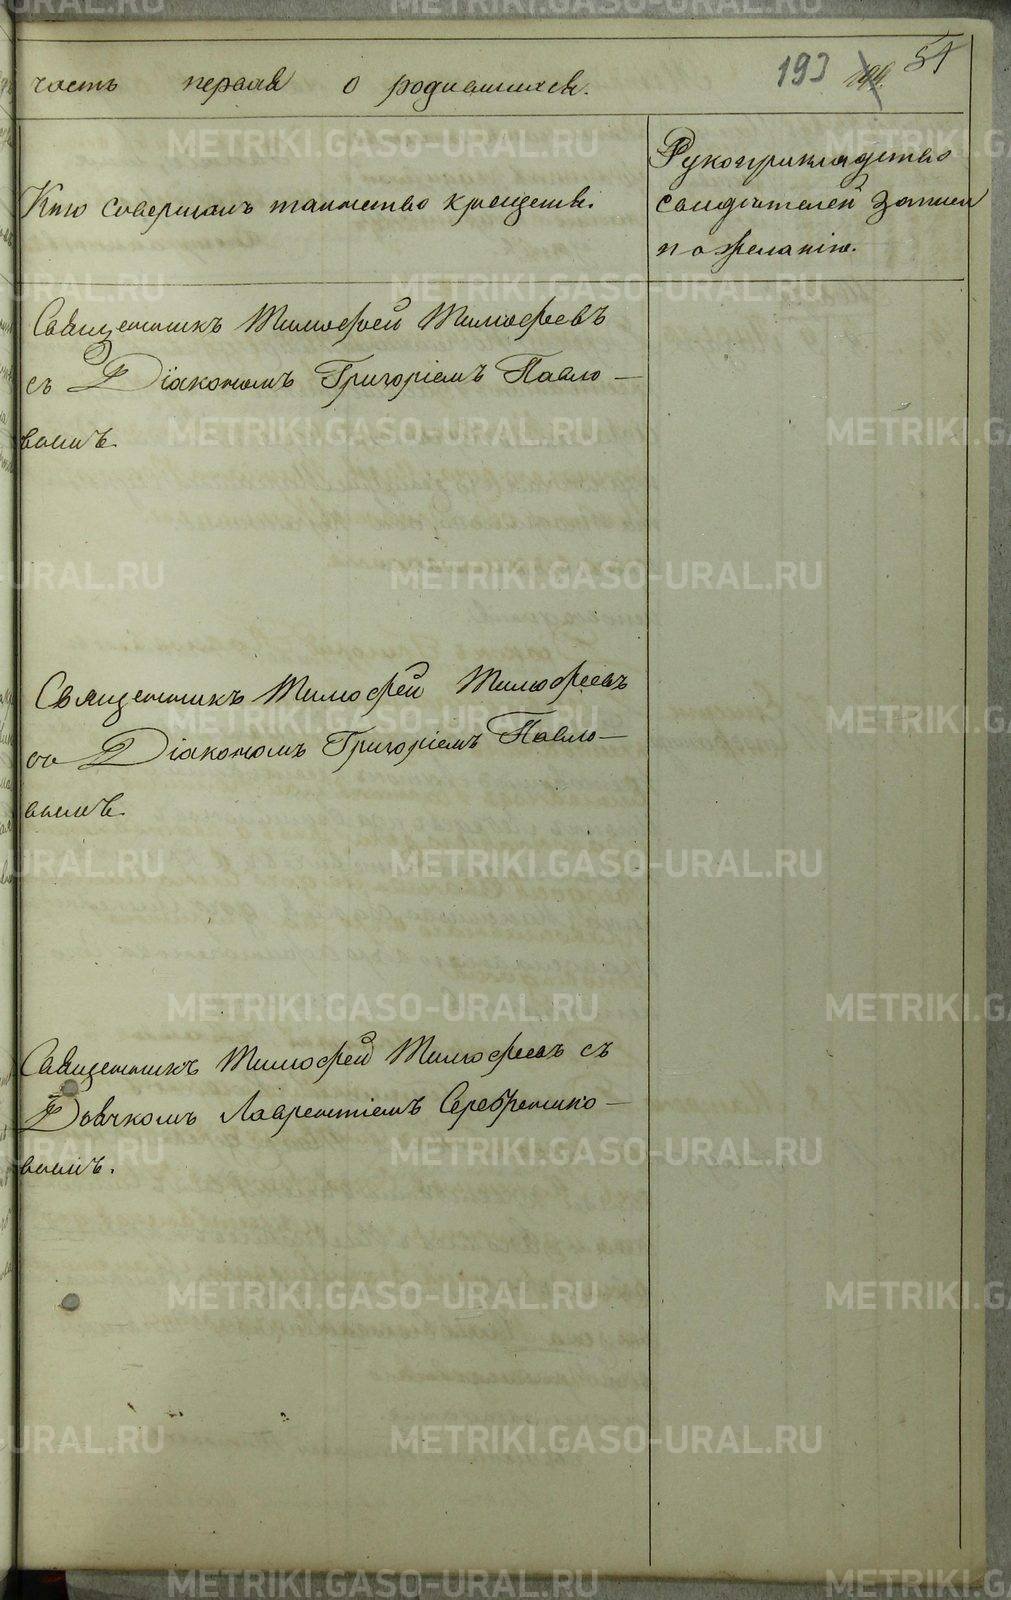 часть первая о родившихся.
193 194. 51
Кто совершалъ таинство крещенія.
Рукоприкладство
свидѣтелей записи
по желанію.
Священникъ Тимофей Тимофеевъ
съ Діакономъ Григоріемъ Павло-
вымъ.
Священникъ Тимофей Тимофеевъ
съ Діакономъ Григоріемъ Павло-
вымъ.
Священникъ Тимофей Тимофеевъ съ
Дьячкомъ Лаврентіемъ Серебренико-
вымъ.
METRIKI.GASO-URAL.RU